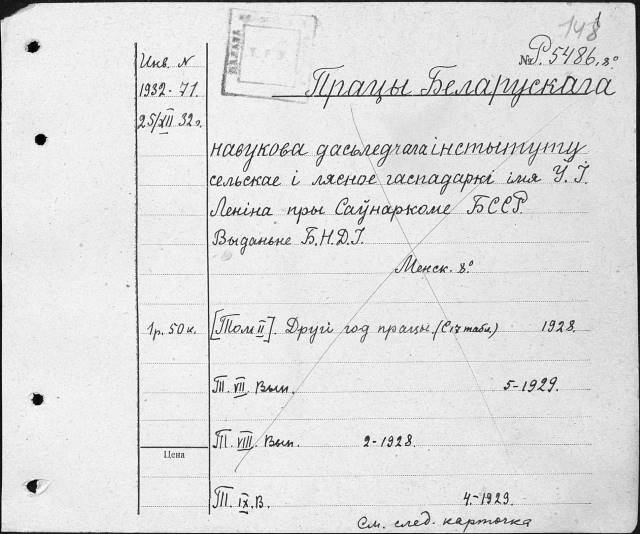 148
Инв. N
№ Р. 5486, 8°
1932-71.
Працы Беларускага
25/XII 32 г.
навукова дасьледчага інстытуту
сельскае і лясное гаспадаркі імя У. І.
Леніна пры Саўнаркоме БССР.
Выданьне Б.Н.Д.І.
Менск. 8°
1 р. 50 к. [Том II]. Другі год працы. (С 17 табл.) 1928.
Т. VII. Вып. 5-1929.
Т. VIII. Вып. 2-1928.
Цена
Т. IX. В. 4-1929.
См. след. карточка